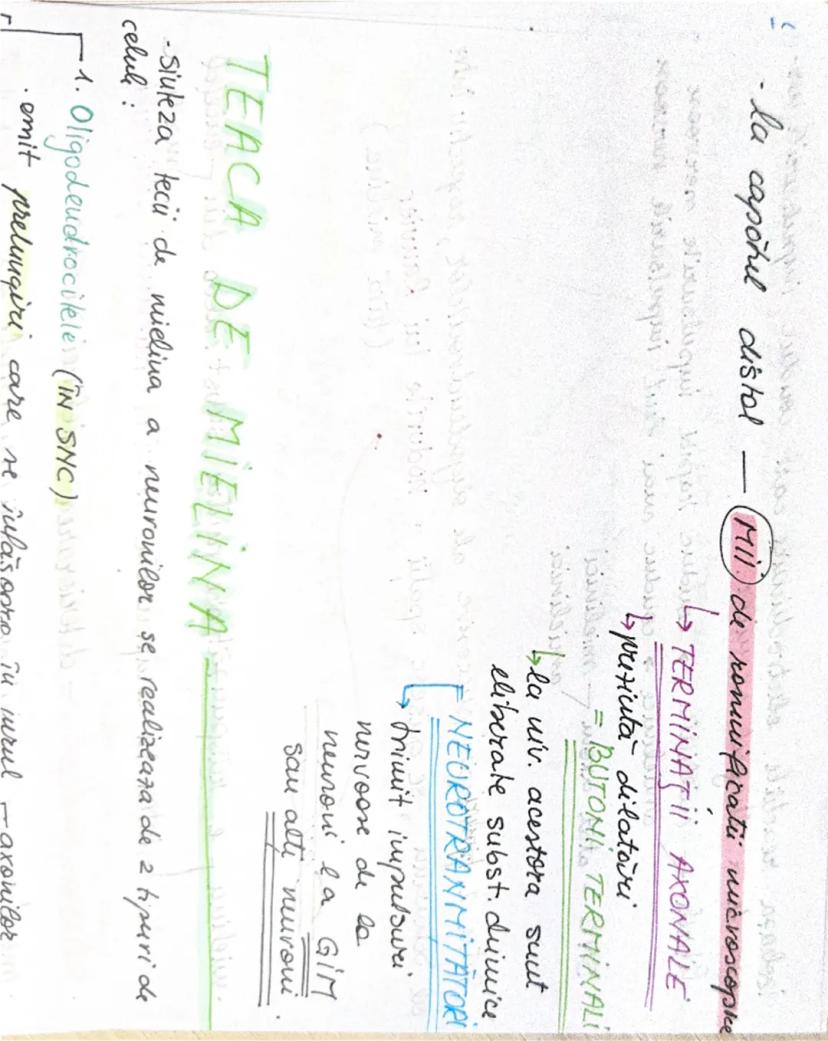 - la capătul distal — MII de ramificatii microscopice
↳ TERMINAȚII AXONALE
↳ prezintă dilatări
= BUTONII TERMINALI
↳ la niv. acestora sunt
eliberate subst. chimice
= NEUROTRANMIȚĂTORI
↳ trimit impulsuri
nervoase de la
neuroni la GIM
sau alți neuroni.
TEACA DE MIELINA
- Sinteza tecii de mielina a neuronilor se realizeaza de 2 tipuri de
celule:
1. Oligodendrocitele (ÎN SNC)
· emit prelungiri care se înfășoara în jurul — axonilor